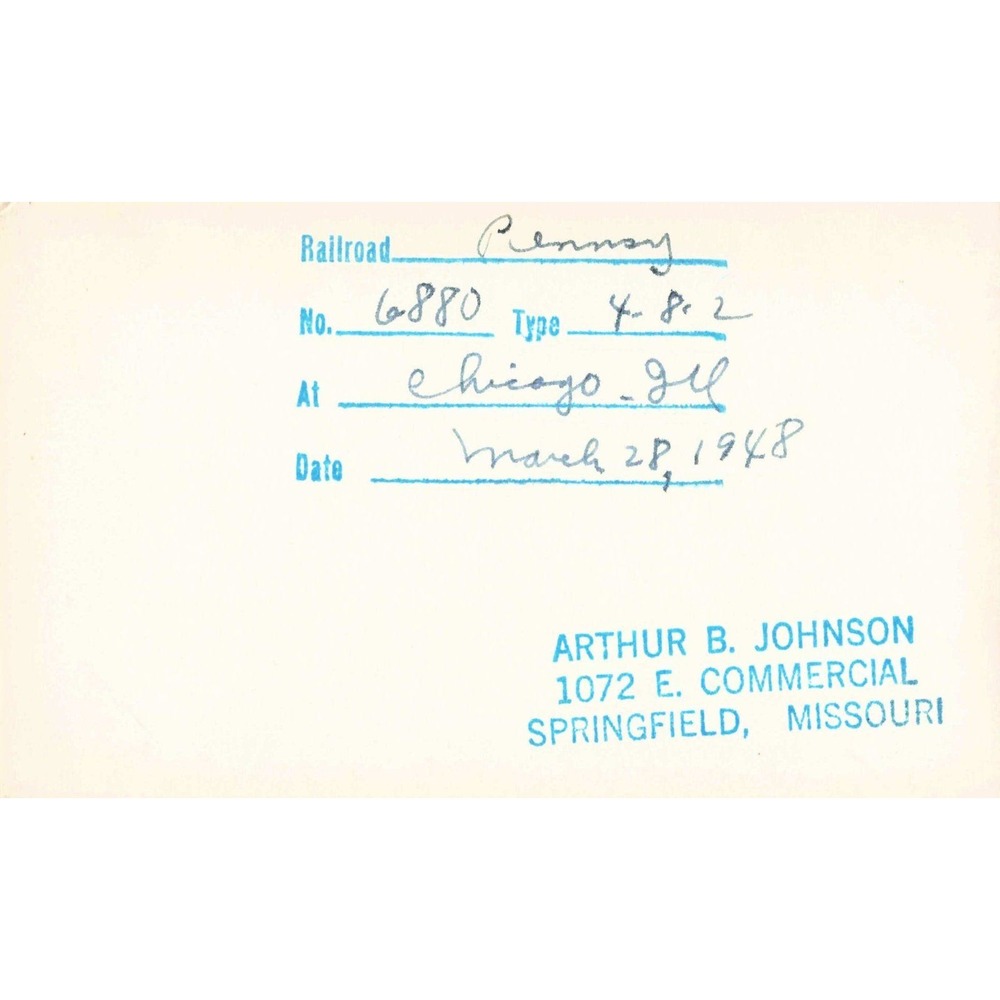 Railroad Pennsy
No. 6880 Type 4-8-2
At Chicago - Ill
Date March 28, 1948
ARTHUR B. JOHNSON
1072 E. COMMERCIAL
SPRINGFIELD, MISSOURI